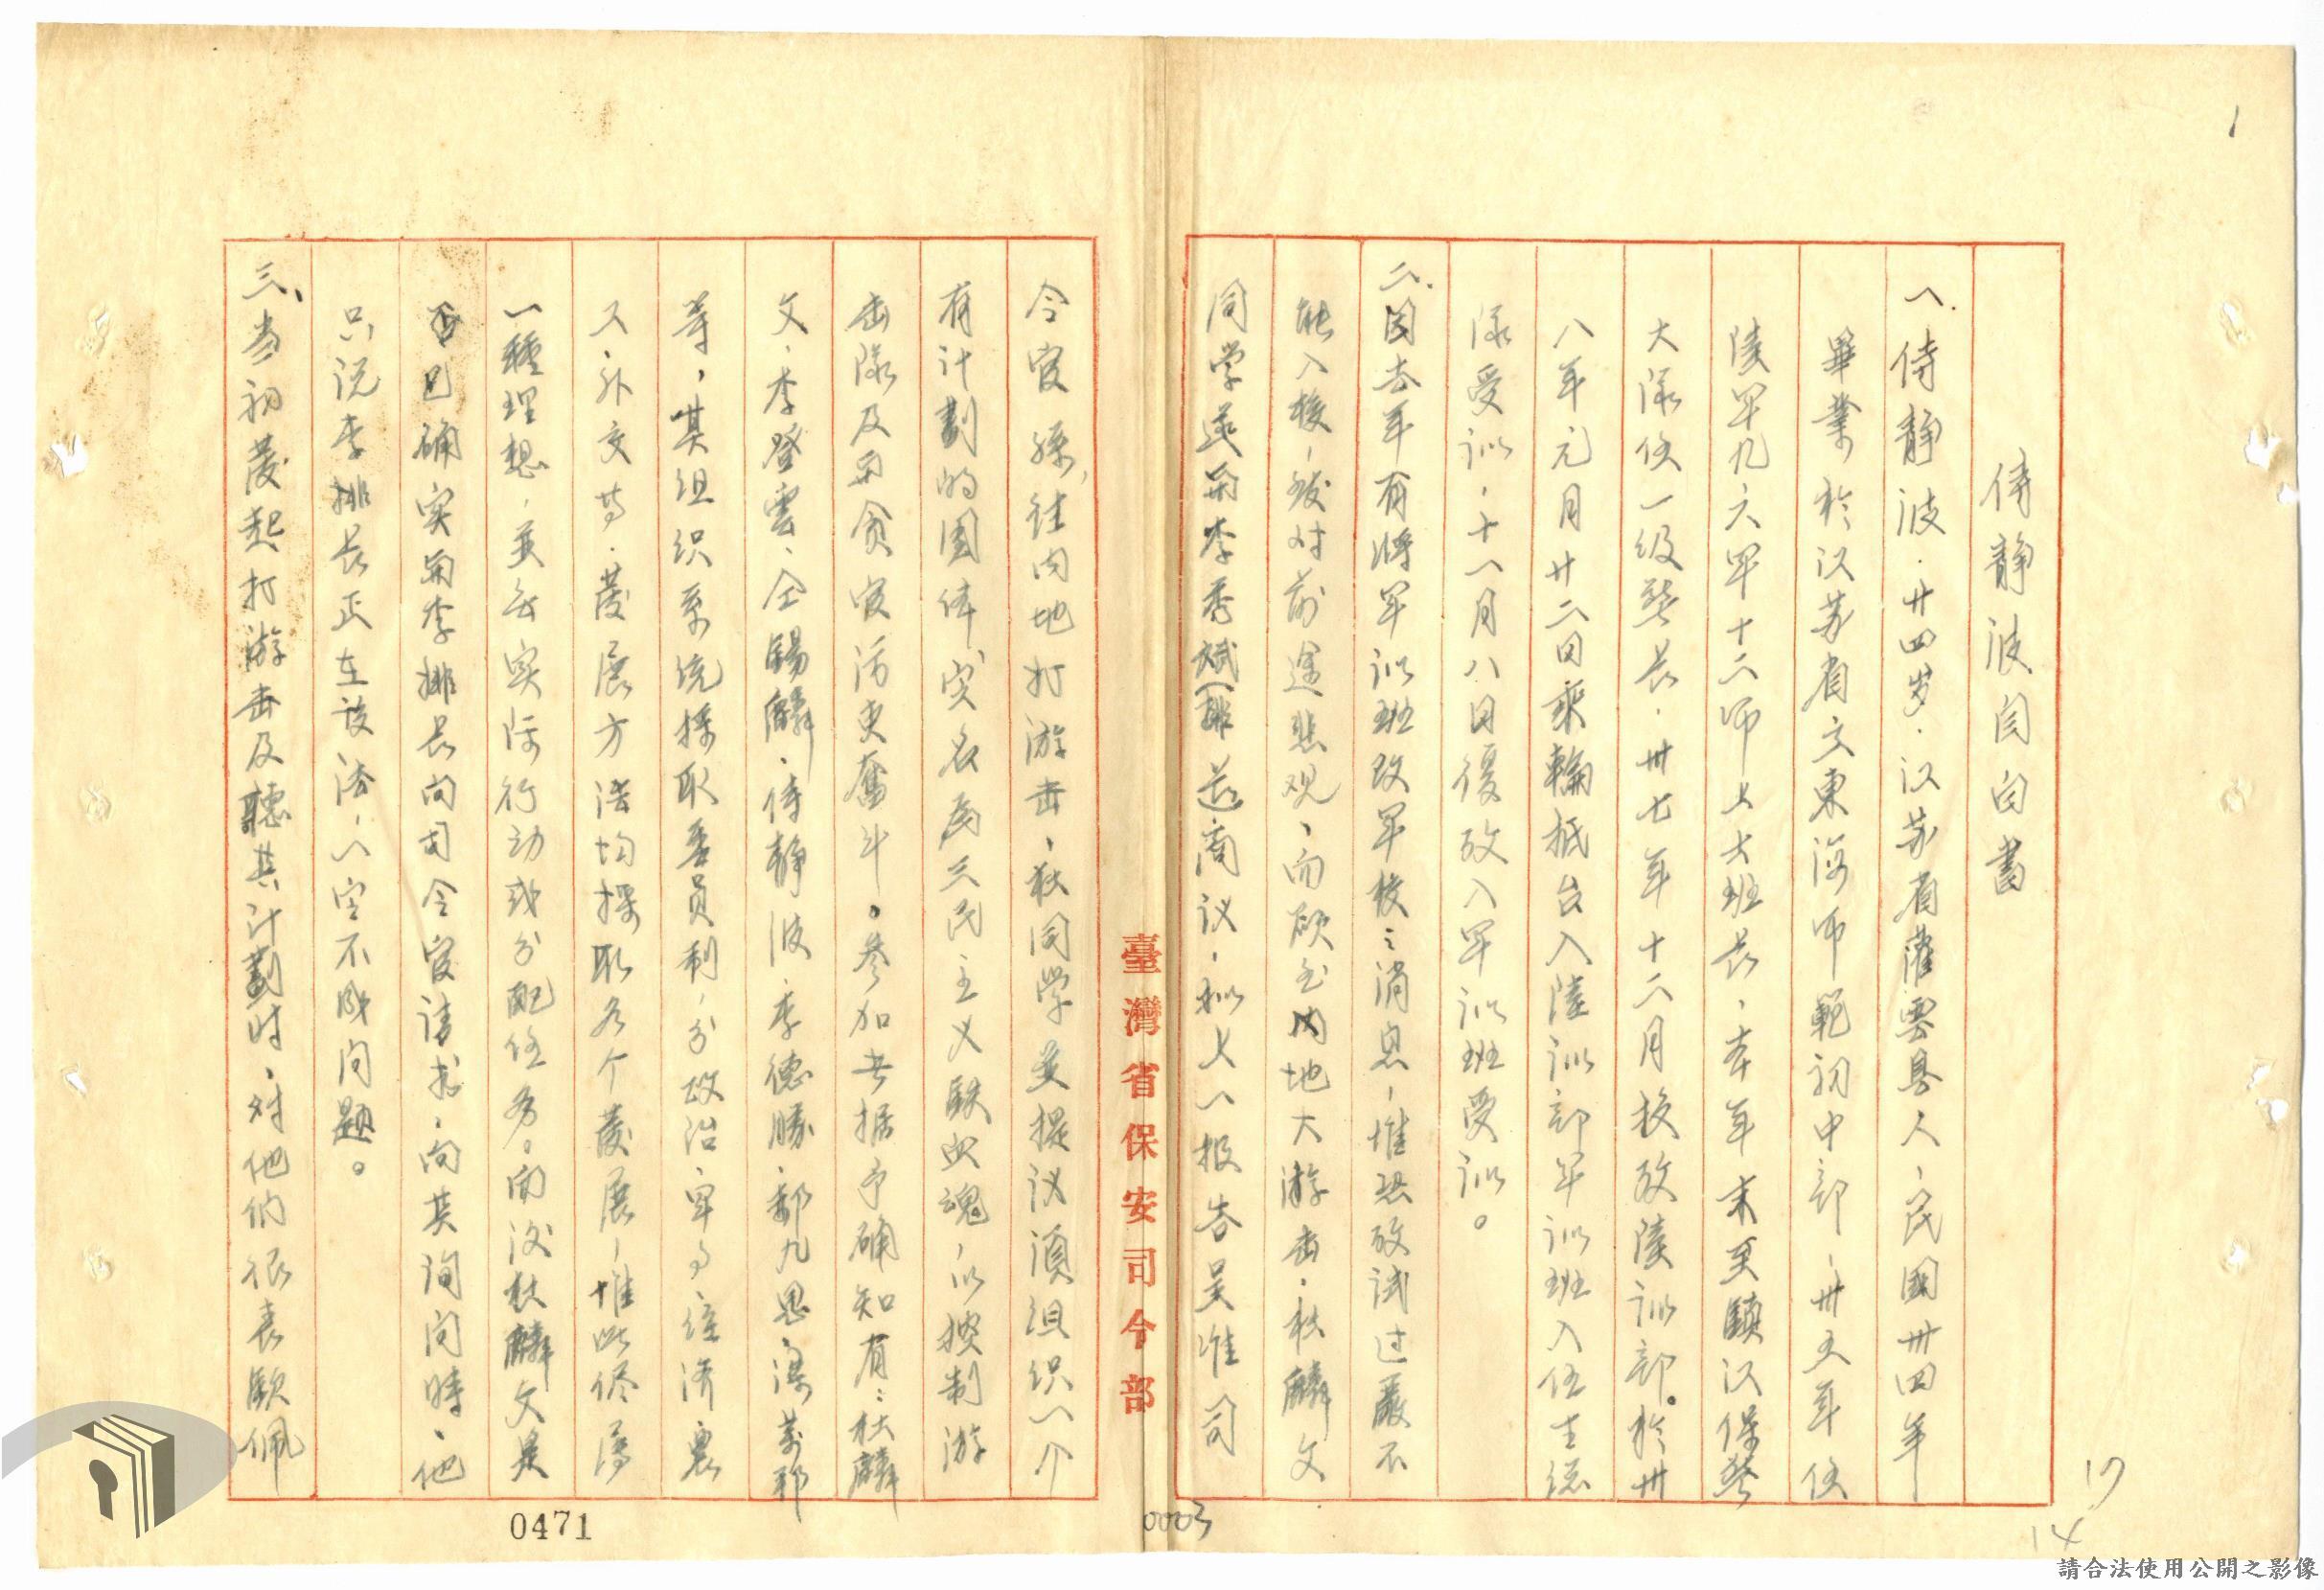 1
侍靜波自白書
一、侍靜波．廿四岁．江苏省灌雲县人、民國卅四年
畢業於江苏省立東海师範初中部、卅五年任
陸军九六军十二师上士班长、本年末至鎮江保警
大隊任一级警长．卅七年十二月投攷陸训部。於卅
八年元月廿二日乘輪抵台入陸训部军训班入伍生总
隊受训．十一月八日復攷入军训班受训。
二、因去年有將军训班改军校之消息、惟恐攷試过嚴不
能入校、致对前途悲观、而願至内地大游击．秋麟文
同学遂與李秀斌排长商议．拟上一报告吴准司
令官孫，往内地打游击、秋同学並提议須组织一个
有计劃的團体实名為三民主义鉄血魂、以控制游
击隊及與贪官污吏奮斗。参加者据予确知有：秋麟
文．李登雲、仝錫麟．侍静波．李德勝．鄒九思．湯萬邦
等．其组织系统採取委员制、分政治军事经济农
工．外交等．發展方法均採取各个發展、惟此係属
一種理想、並無实际行动或分配任务。闻後秋麟文是
否已确实與李排长向司令官请求．向其询问時、他
只说李排长正在设法、一定不成问题。
三、当初發起打游击及聽其计劃时．对他们很表欽佩
臺灣省保安司令部
0471
0003
17
14
請合法使用公開之影像